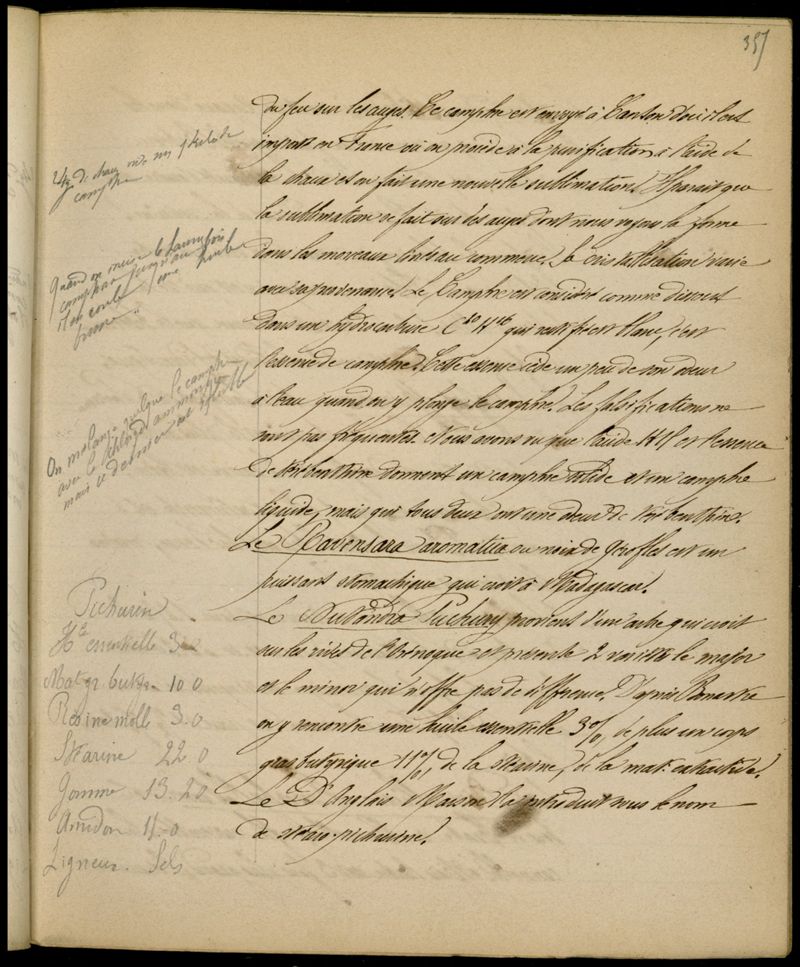 357
du feu sur les auges. Ce camphre est envoyé à Canton d'où il est
importé en France où on procède à la purification à l'aide de
la chaux et on fait une nouvelle sublimation. Il parait que
la sublimation se fait sur des auges dont nous voyons la forme
dans les morceaux livrés au commerce. La cristallisation varie
avec sa provenance. Le Camphre est considéré comme dissout
dans un hydrocarbure C20 H16 qui rectifié est blanc, c'est
l'essence de camphre. Cette essence cède un peu de son odeur
à l'eau quand on y plonge le camphre. Les falsifications ne
sont pas fréquentes. Nous avons vu que l'acide HCl et l'essence
de térébenthine donnent un camphre solide et un camphre
liquide, mais qui tous deux ont une odeur de térébenthine.
Le Ravensara aromatica ou noix de gérofles est un
puissant stomachique qui croit à Madagascar.
Le Nectandra Puchury provient d'un arbre qui croit
sur les rives de l'Orénoque et présente 2 variétés le major
et le minor qui n'offre pas de différence. D'après Bonastre
on y rencontre une huile essentielle 3%, de plus un corps
gras butyrique 11%, de la stéarine, de la mat. extractive.
Le Dr Anglais la introduit sous le nom
de pichurine.
de chaux
camphre
Quand on
camphora jusqu'au
il en coule une huile
brune.
On mélange quelque le camphre
avec le chlorhyd. ammoniaque
mais ce dernier est
Pichurin
Hle essentielle 3
Mat gr butyr. 10 0
Résine molle 3.0
Stéarine 22 0
Gomme 13.20
Amidon 11.0
Ligneux. Sels